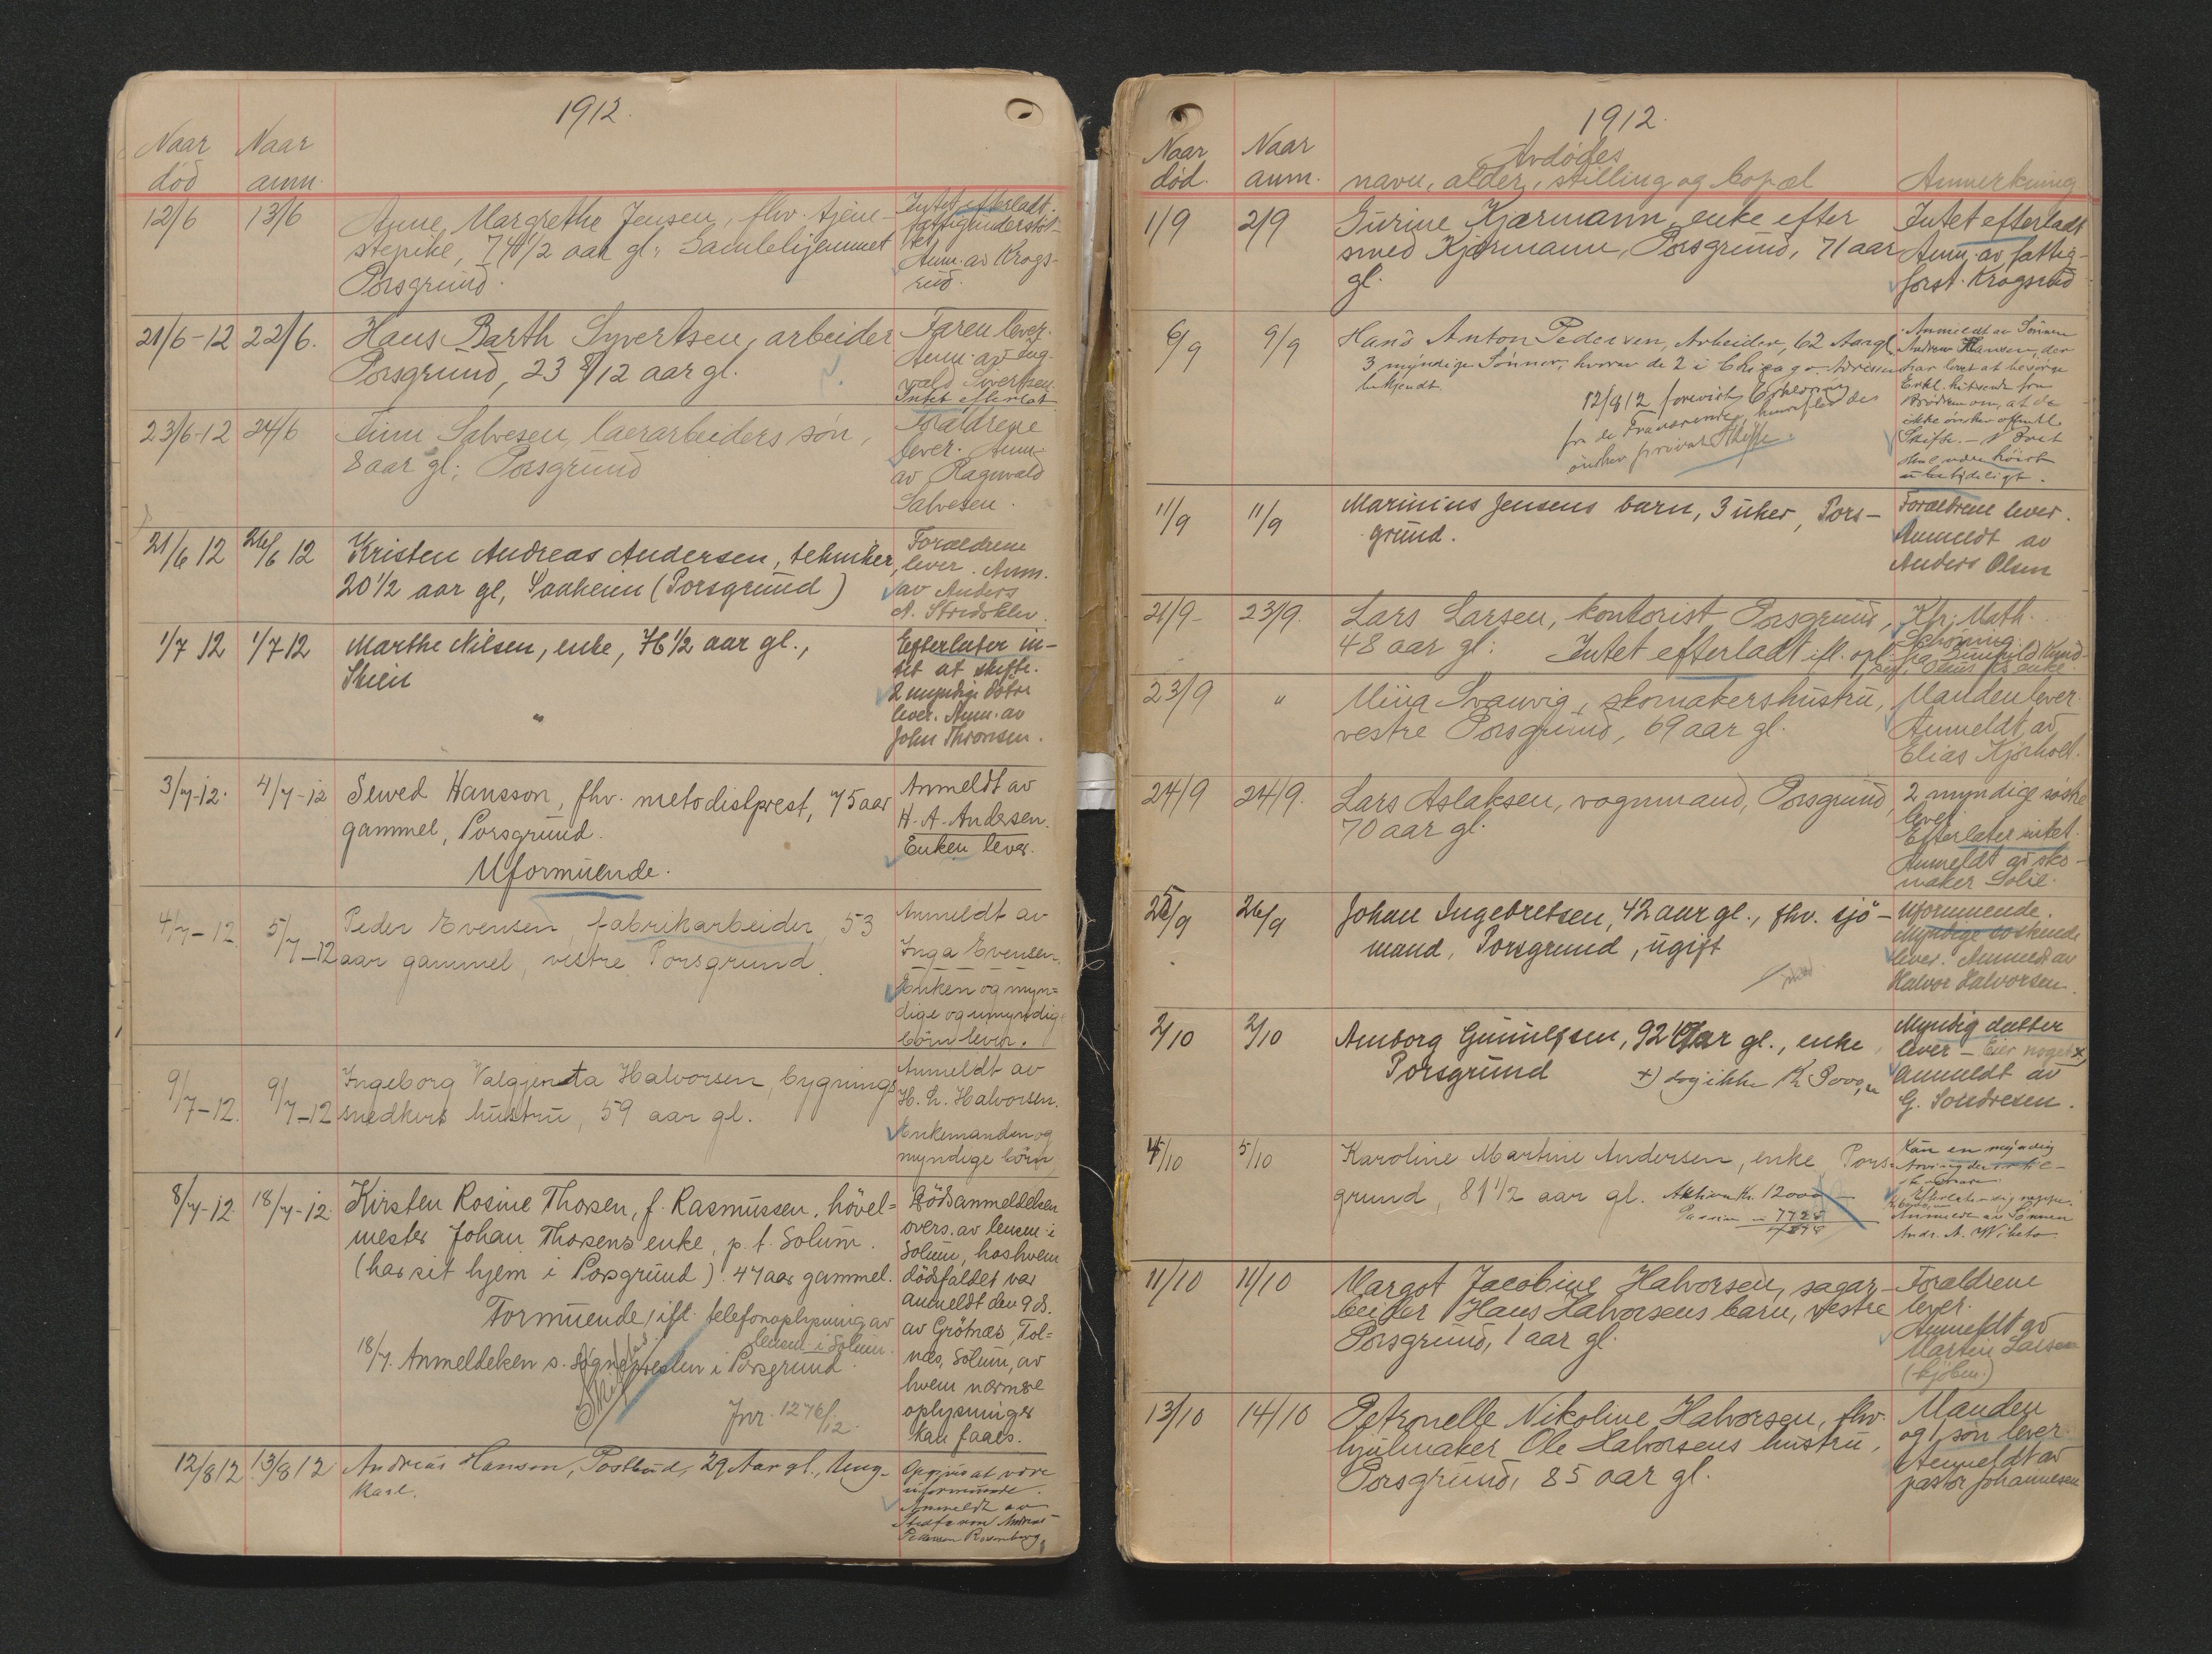 1912.
Naar død
Naar anm.
12/6 13/6 Anne Margrethe Jensen, fhv. tjene-
stepike, 74 1/2 aar gl., Gamlehjemmet
Porsgrund.
Intet efterladt.
fattigunderstöt-
tet
Anm. av Krogs-
rud.
21/6-12 22/6. Hans Barth Syvertsen, arbeider
Porsgrund, 23 8/12 aar gl.
Faren lever.
Anm. av Ing-
vald Sivertsen.
Intet efterlat
23/6-12 24/6 Finn Salvesen, laerarbeiders søn,
8 aar gl., Porsgrund
Forældrene
lever. Anm.
av Ragnvald
Salvesen.
21/6 12 26/6 12 Kristen Andreas Andersen, tekniker,
20 1/2 aar gl, Saaheim (Porsgrund)
Foraeldrene
lever. Anm.
av Anders
A. Stridsklev.
1/7 12 1/7 12 Marthe Nilsen, enke, 76 1/2 aar gl.,
Skien
Efterlater in-
tet at skifte.
2 myndige døtre
lever. Anm. av
John Thronsen.
3/7-12. 4/7-12 Sewed Hansson, fhv. metodistprest, 75 aar
gammel, Porsgrund.
Uformuende.
Anmeldt av
H. A. Andersen.
Enken lever.
4/7-12. 5/7-12 Peder Evensen, fabrikarbeider, 53
aar gammel, vestre Porsgrund.
Anmeldt av
Inga Evensen.
Enken og myn=
dige og umyndige
börn lever.
9/7-12. 9/7-12 Ingeborg Valgjenta Halvorsen, bygnings
snedkers hustru, 59 aar gl.
Anmeldt av
H. L. Halvorsen.
Enkemanden og
myndige börn
8/7-12 18/7-12. Kirsten Rosine Thorsen, f. Rasmussen, hövel=
mester Johan Thorsens enke, p. t. Solum.
(har sit hjem i Porsgrund). 47 aar gammel.
Formuende, ifl. telefonoplysning av
lensm. i Solum.
18/7. Anmeldelsen s. sognepresten i Porsgrund.
Skifte
Jnr. 1276/12.
Dödsanmeldelsen
overs. av lensm. i
Solum, hoshvem
dödsfaldet var
anmeldt den 9 ds.
av Grötnæs, Tol=
næs, Solum, av
hvem nærmere
oplysninger
kan faaes.
12/8 12 13/8 12 Andreas Hansen, Postbud, 29 Aar gl., Ung-
karl.
Opgives at være
uformuende.
Anmeldt av
Stedfaren Andreas
Pedersen Rosenberg.
1912.
Naar død.
Naar anm.
Avdødes
navn, alder, stilling og bopæl
Anmerkning
1/9 2/9 Gurine Kjærmann, enke efter
smed Kjærmann, Porsgrund, 71 aar
gl.
Intet efterladt
Anm. av fattig-
forst. Krogsrud
6/9 9/9 Hans Anton Pedersen, Arbeider, 62 Aar gl
3 myndige Sönner, hvorav de 2 i Chicago. Adressen
bekjendt.
12/9 12 forevist Erklæring
fra de fraværende, hvorefter des
önskes privat Skifte.
Anmeldt av Sönnen
Andreas Hansen, der
har lovet at besörge
Erkl. hitsendt fra
Brödrene om, at de
ikke önsker offentl.
Skifte. - Boet
skal være höist
ubetydeligt.
11/9 11/9 Marinius Jensens barn, 3 uker, Pors-
grund.
Foraeldrene lever.
Anmeldt av
Anders Olsen
21/9- 23/9. Lars Larsen, kontorist Porsgrund,
48 aar gl. Intet efterladt ifl. opl.
Kfr. Math.
Schonning
fra Gunhild Knud-
sen,
23/9 " Mina Svanvig, skomakershustru,
vestre Porsgrund, 69 aar gl.
Manden lever.
Anmeldt av
Elias Kjørholt.
24/9 24/9. Lars Aslaksen, vognmand, Porsgrund,
70 aar gl.
2 myndige søstre
lever.
Efterlater intet.
Anmeldt av sko-
maker Solie.
25/9 26/9 Johan Ingebretsen, 42 aar gl., fhv. sjö-
mand, Porsgrund, ugift
Uformuende.
Myndige söskende
lever. Anmeldt av
Halvor Halvorsen.
2/10 2/10 Amborg Gunulfsen, 92 1/2 aar gl., enke,
Porsgrund
x) dog ikke
Myndig datter
lever - Eier noget x)
Anmeldt av
G. Sondresen.
4/10 5/10 Karoline Martine Andersen, enke, Pors-
grund, 81 1/2 aar gl. Aktiva Kr. 12000
Passiva
Kun en myndig
Arving
Anmeldt av Sönnen
Andr. A.
11/10 11/10 Margot Jacobine Halvorsen, sagar-
beider Hans Halvorsens barn, vestre
Porsgrund, 1 aar gl.
Foraldrene
lever.
Anmeldt av
Marten Larsen
(kjøbm.)
13/10 14/10 Petronelle Nikoline Halvorsen, fhv.
hjulmaker Ole Halvorsens hustru,
Porsgrund, 85 aar gl.
Manden
og 1 søn lever.
Anmeldt av
pastor Johannesen